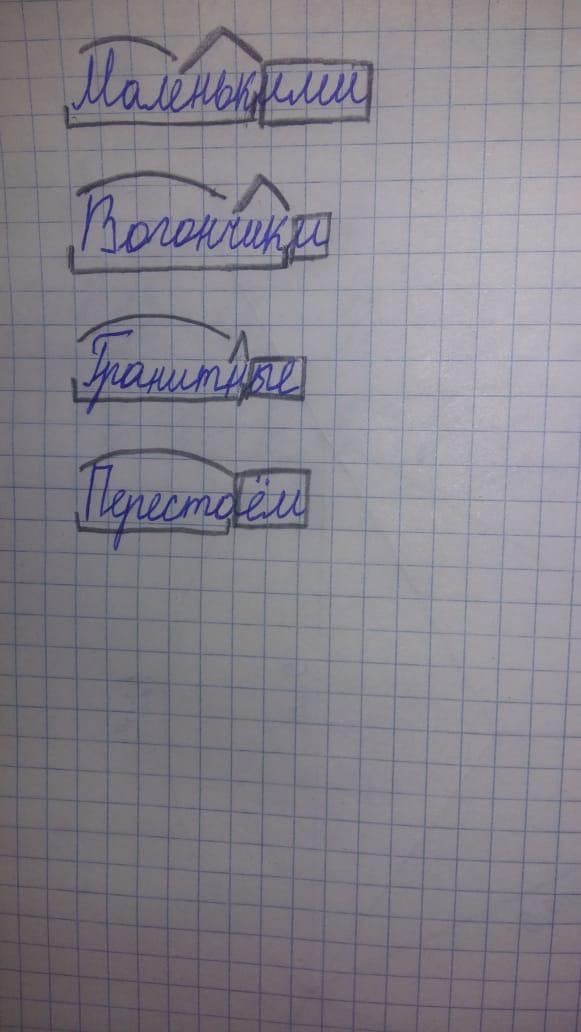 Маленькими
Вогончики
Гранитные
Перестоём